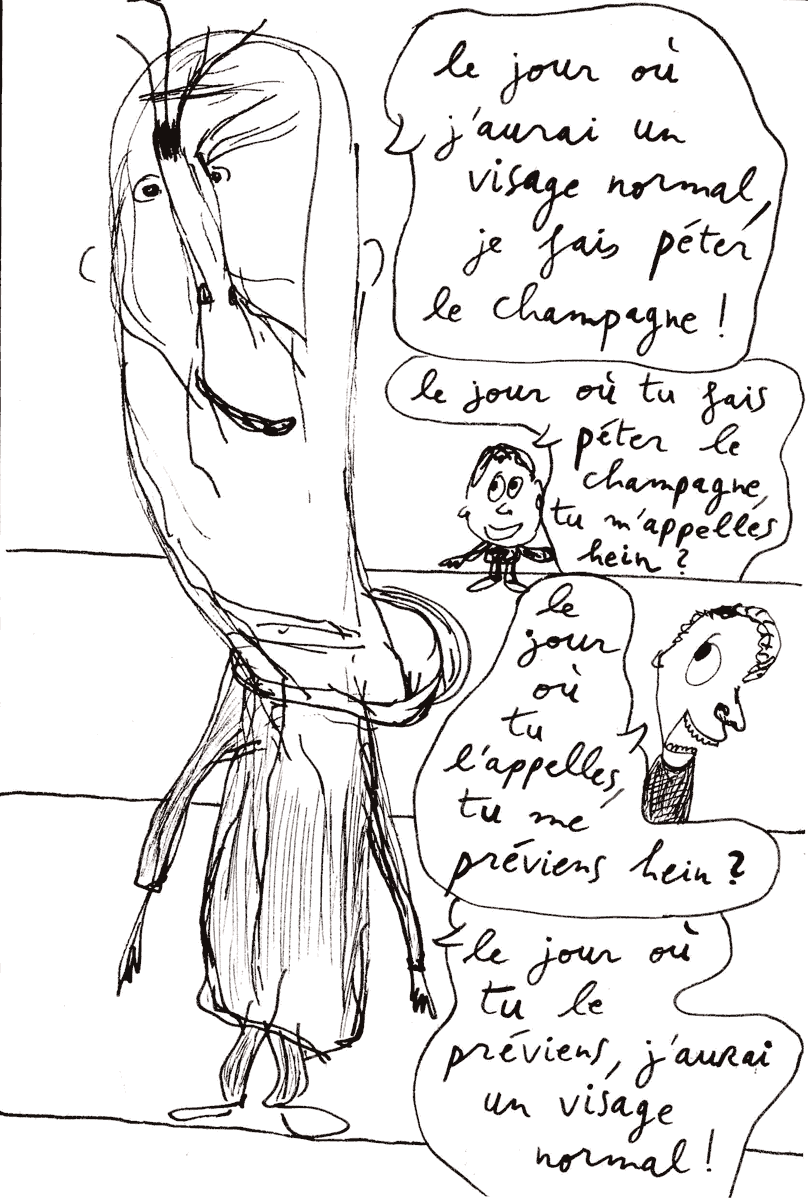 le jour où
j'aurai un
visage normal,
je fais péter
le champagne !
le jour où tu fais
péter le
champagne,
tu m'appelles
hein ?
le
jour
où
tu
l'appelles,
tu me
préviens hein ?
le jour où
tu le
préviens, j'aurai
un visage
normal !